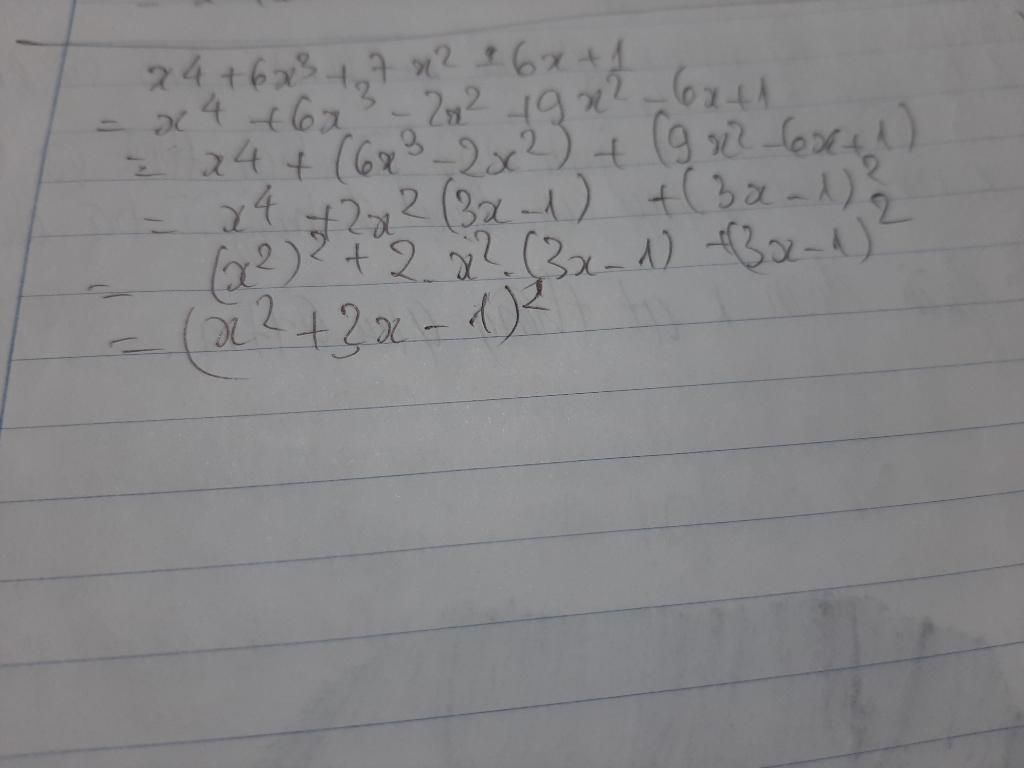 x⁴ + 6x³ + 7x² - 6x + 1
= x⁴ + 6x³ - 2x² + 9x² - 6x + 1
= x⁴ + (6x³ - 2x²) + (9x² - 6x + 1)
= x⁴ + 2x² (3x - 1) + (3x - 1)²
= (x²)² + 2. x². (3x - 1) + (3x - 1)²
= (x² + 3x - 1)²